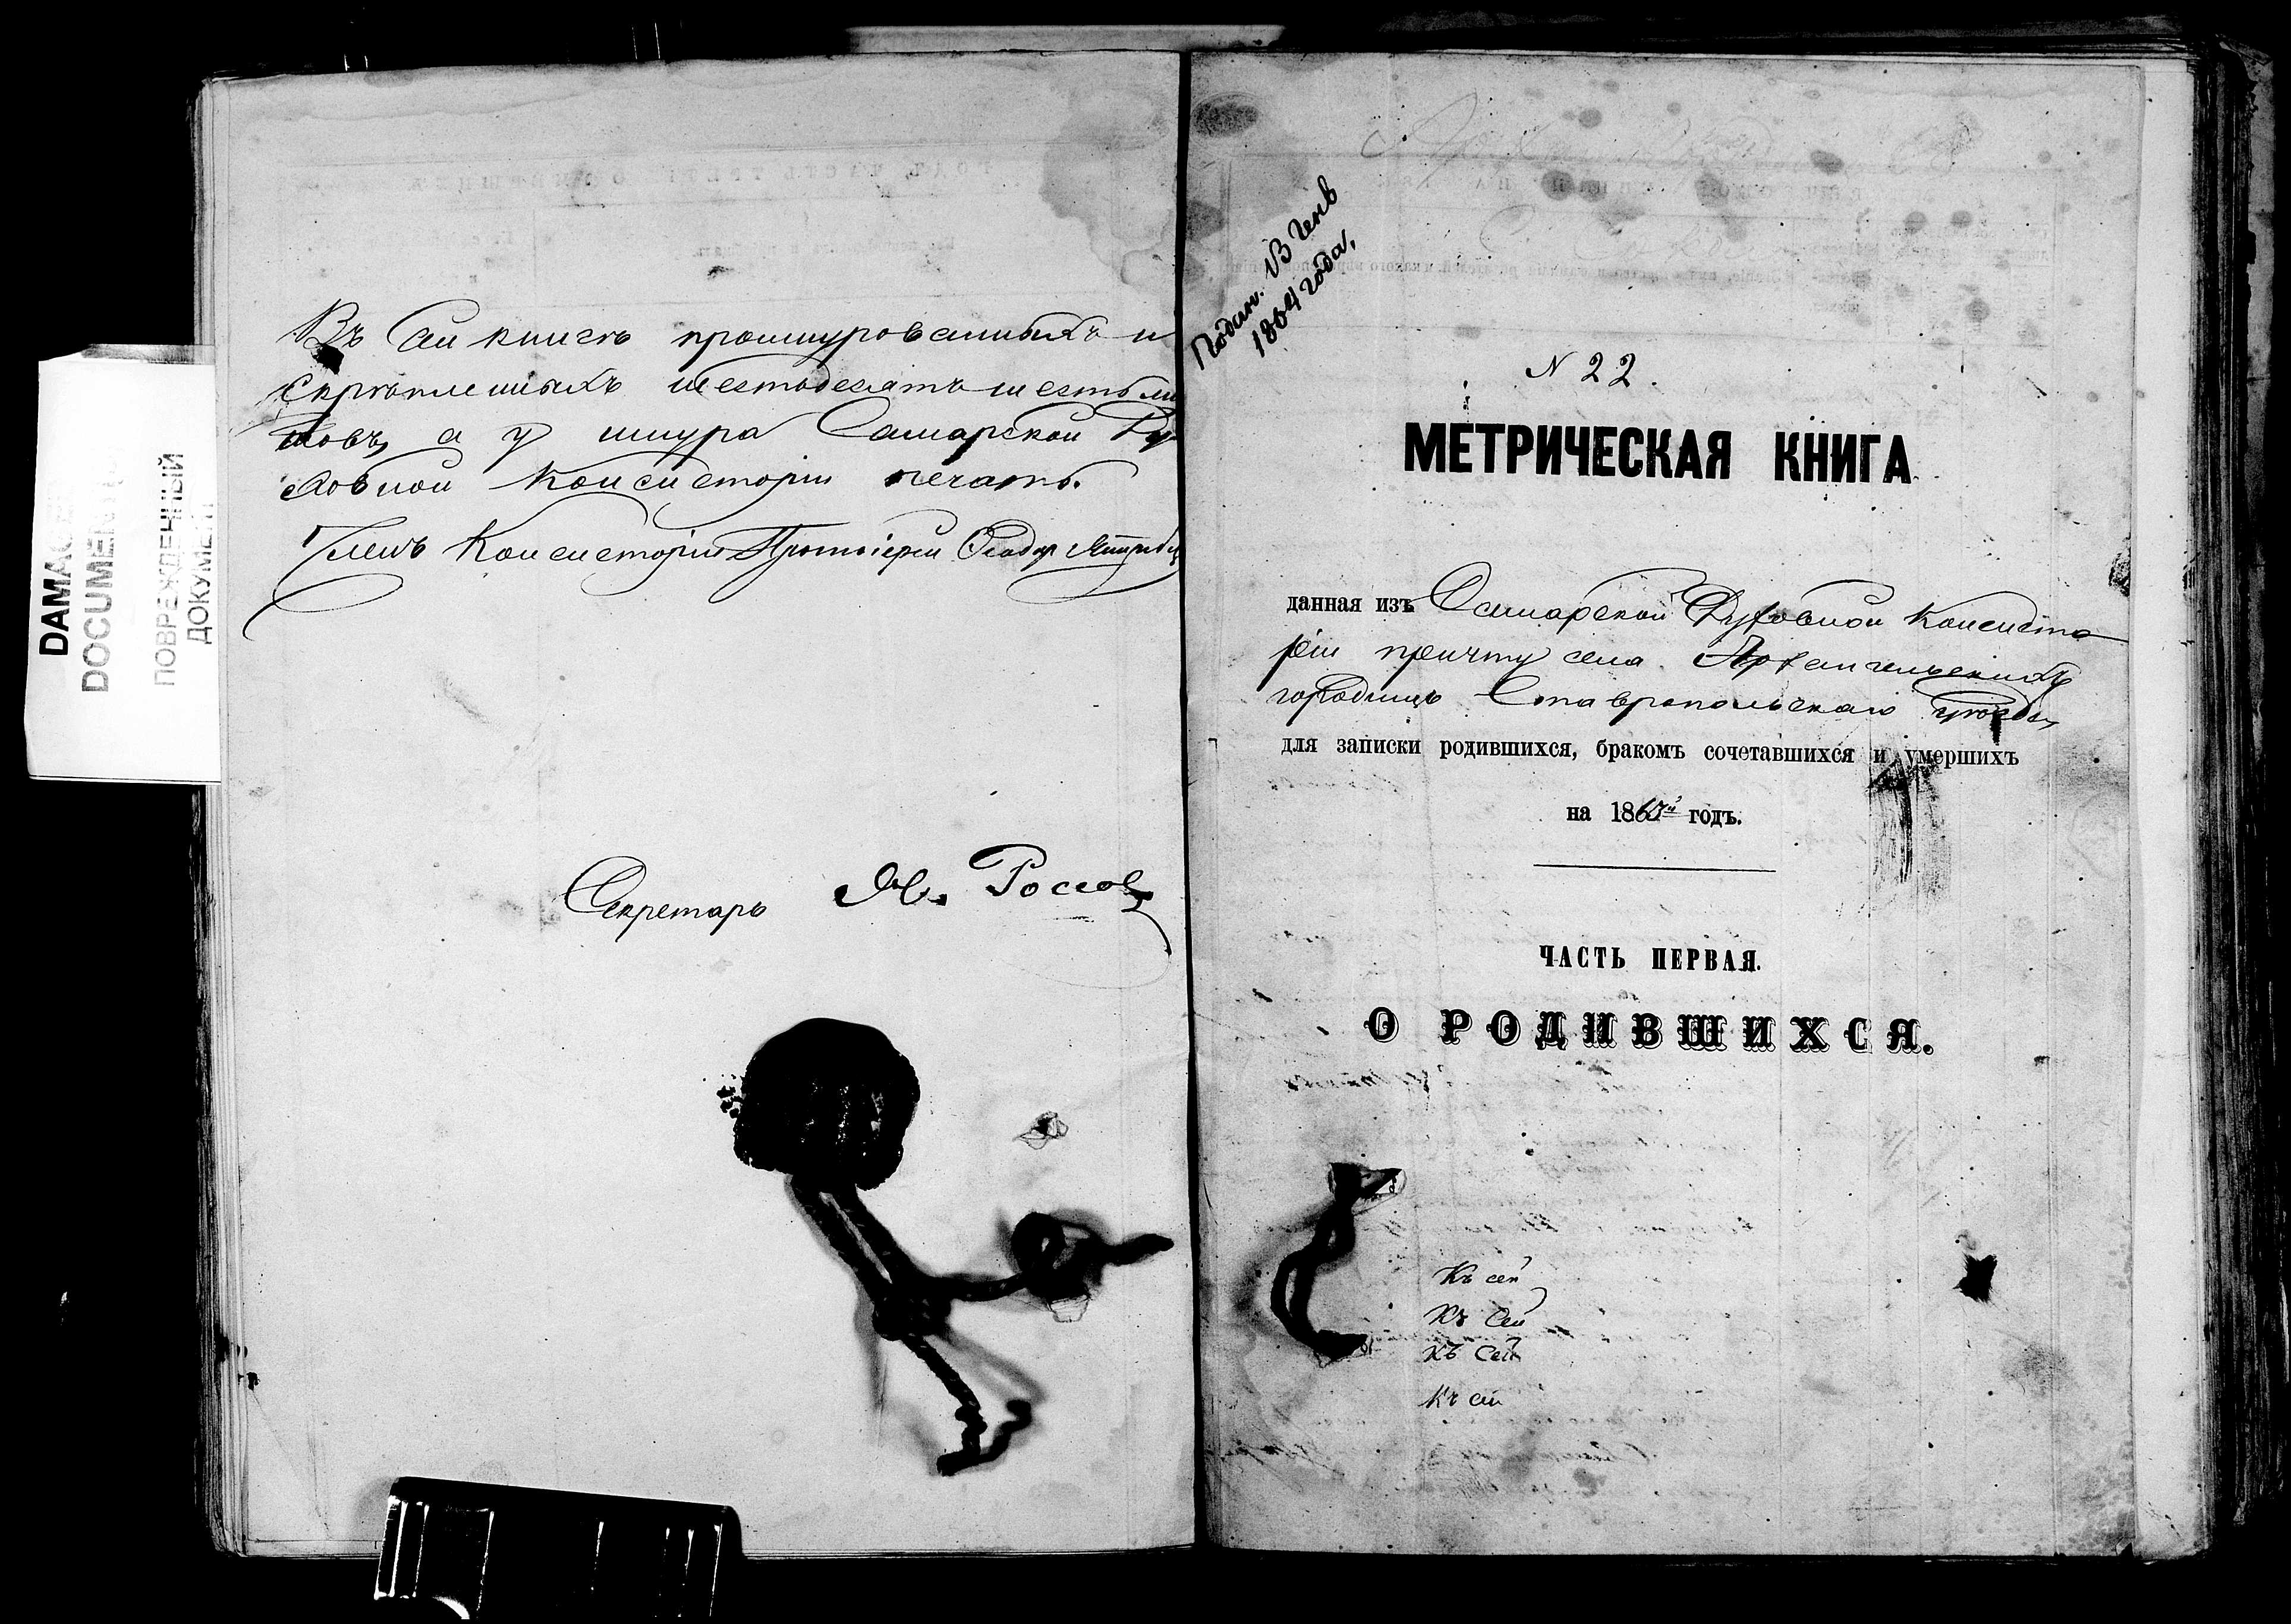 DAMAGED
DOCUMENT
ПОВРЕЖДЕННЫЙ
ДОКУМЕНТ
Въ сей книгѣ прошнурованныхъ и
скрѣпленныхъ шестьдесятъ шесть ли
стовъ, а у шнура Самарской Ду
ховной Консисторіи печать.
Членъ Консисторіи Протоіерей Ѳеодоръ
Секретарь Россов
Подан. 1864 года,
N 22.
МЕТРИЧЕСКАЯ КНИГА
данная изъ Самарской Духовной Консисто
ріи причту села Архангельскихъ
городищъ Ставропольскаго уѣзда,
для записки родившихся, бракомъ сочетавшихся и умершихъ
на 186 годъ.
ЧАСТЬ ПЕРВАЯ.
О РОДИВШИХСЯ.
Къ сей
Къ Сей
Къ Сей
Къ сей